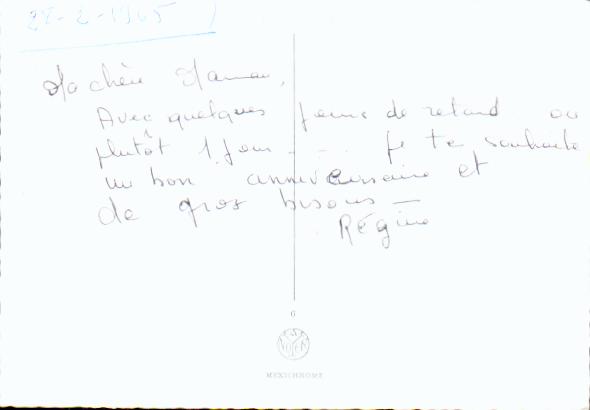 28-2-1965
Ma chère Maman,
Avec quelques jours de retard ou
plutôt 1 jour - . . . je te souhaite
un bon anniversaire et
de gros bisous —
Régine
6
MEXICHROME